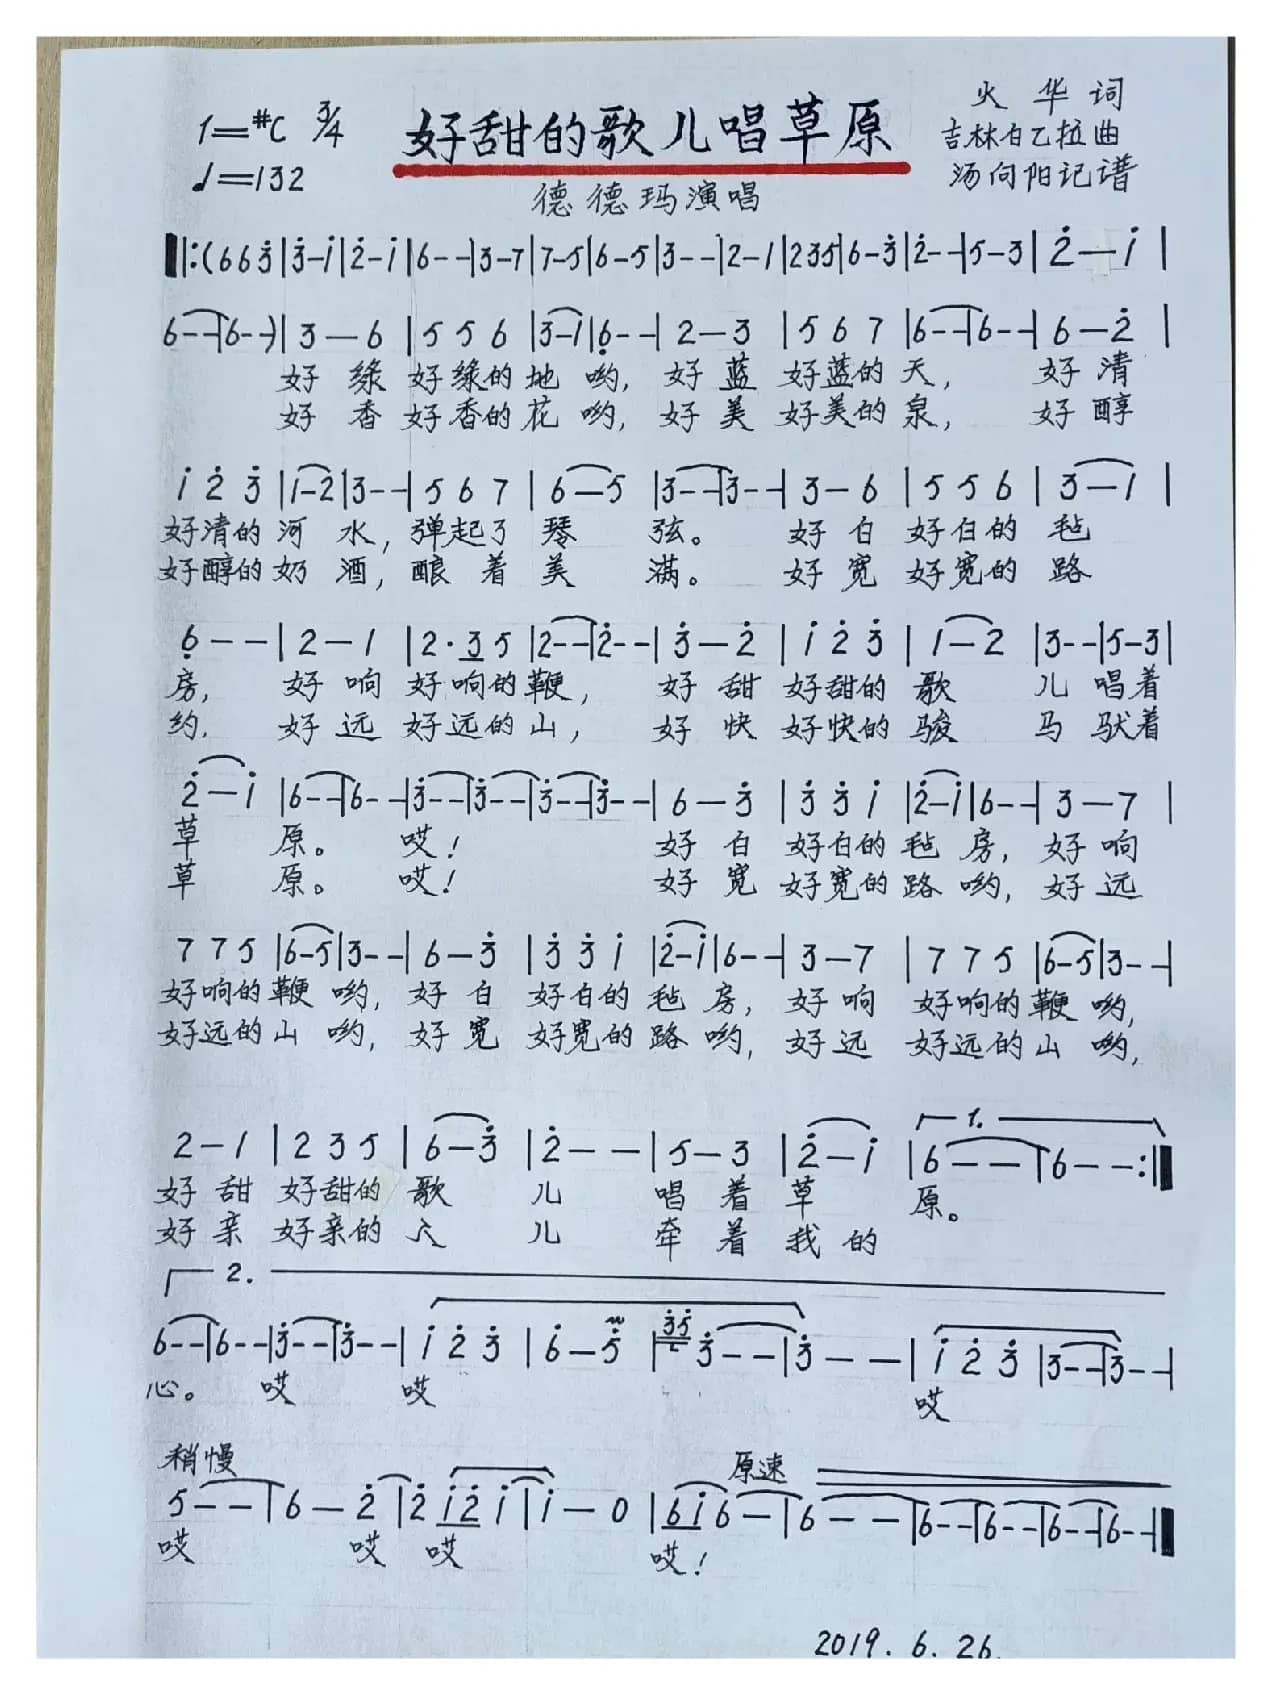 1=#C 3/4 好甜的歌儿唱草原 火华词
♩=132 吉林白乙拉曲
德德玛演唱 汤向阳记谱
‖:(6 6 3̇|3̇-i̇|2̇-i̇|6--|3-7|7-5|6-5|3--|2-1|2 3 5|6-3̇|2̇--|5-3|2̇-i̇|
6--|6--)|3-6|5 5 6|3-1|6̣--|2-3|5 6 7|6--|6--|6-2̇|
好 绿 好绿的地 哟, 好 蓝 好蓝的天, 好 清
好 香 好香的花 哟, 好 美 好美的泉, 好 醇
i̇ 2̇ 3̇|1-2|3--|5 6 7|6-5|3--|3--|3-6|5 5 6|3-1|
好清的河 水, 弹起了 琴 弦。 好 白 好白的 毡
好醇的奶 酒, 酿着美 满。 好 宽 好宽的 路
6̣--|2-1|2·3 5|2--|2--|3̇-2̇|i̇ 2̇ 3̇|1-2|3--|5-3|
房, 好 响 好响的鞭, 好 甜 好甜的 歌 儿 唱着
约, 好 远 好远的山, 好 快 好快的 骏 马 驮着
2̇-i̇|6--|6--|3̇--|3̇--|3̇--|3̇--|6-3̇|3̇ 3̇ i̇|2̇-i̇|6--|3-7|
草 原。 哎! 好 白 好白的毡 房, 好 响
草 原。 哎! 好 宽 好宽的路 哟, 好 远
7 7 5|6-5|3--|6-3̇|3̇ 3̇ i̇|2̇-i̇|6--|3-7|7 7 5|6-5|3--|
好响的鞭 哟, 好 白 好白的 毡 房, 好 响 好响的鞭 哟,
好远的山 哟, 好 宽 好宽的路 哟, 好 远 好远的山 哟,
1.
2-1|2 3 5|6-3̇|2̇--|5-3|2̇-i̇|6--|6--:‖
好 甜 好甜的 歌 儿 唱 着 草 原。
好 亲 好亲的 人 儿 牵 着 我 的
2.
6--|6--|3̇--|3̇--|i̇ 2̇ 3̇|6̇-5̇|3̇5̇ 3̇--|3̇--|i̇ 2̇ 3̇|3̇--|3̇--|
心。 哎 哎 哎
稍慢 原速
5--|6-2̇|2̇ i̇2̇ i̇|i̇-0|6i̇ 6-|6--|6--|6--|6--|6--‖
哎 哎 哎 哎!
2019.6.26.